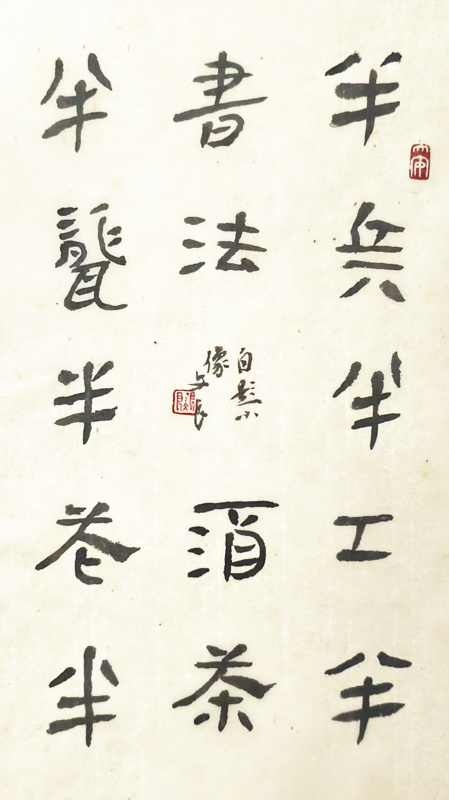 半兵半工半
書法酒茶
半聾半卷半
白髮小
像